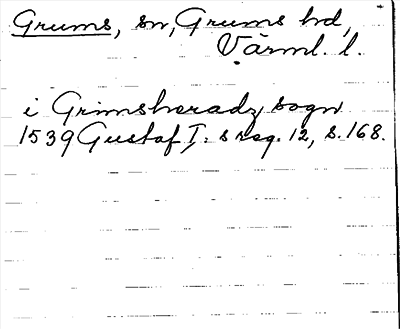 Grums, sn, Grums hd,
Värml. l.
i Grimsheradz sogn
1539 Gustaf I: s reg. 12, s. 168.